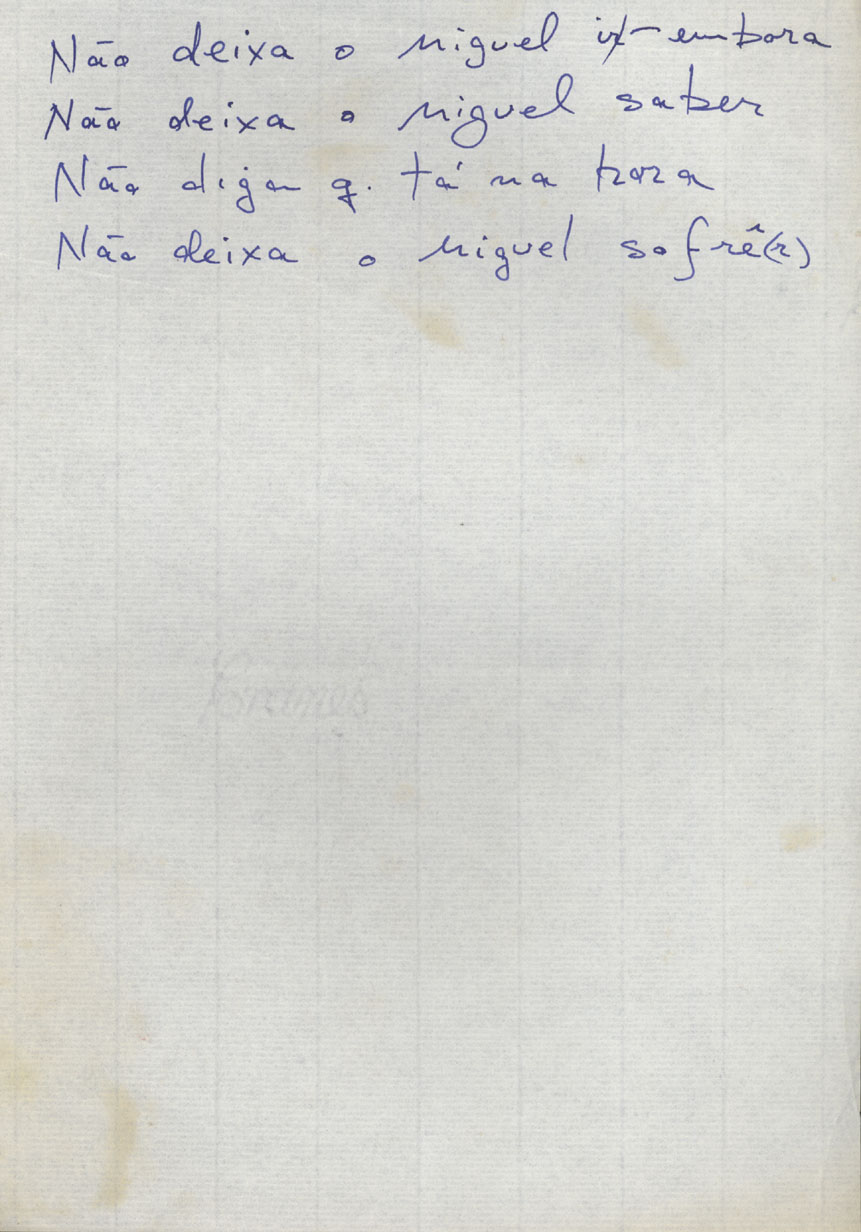 Não deixa o Miguel ir embora
Não deixa o Miguel saber
Não diga q. tá na hora
Não deixa o Miguel sofrê(r)